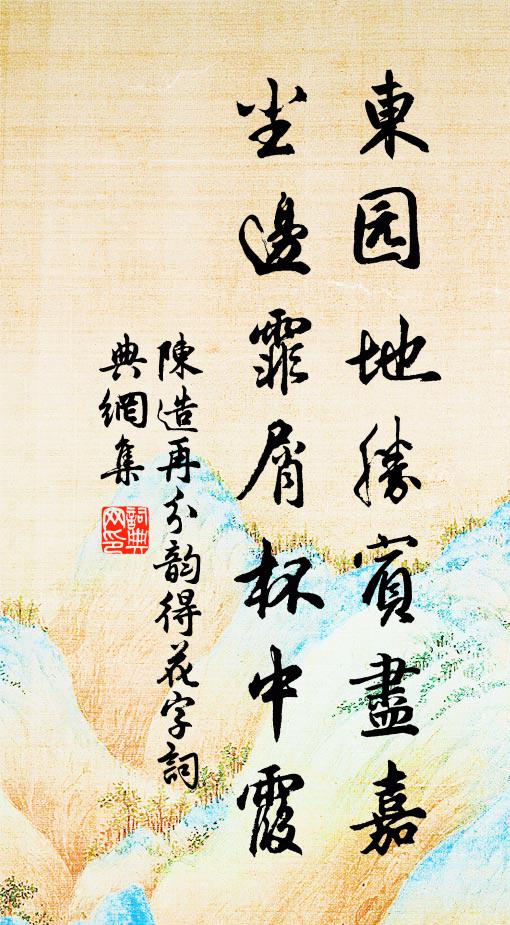 東园地勝賓盡嘉
坐邊霏屑杯中霞
陳造再分韵得花字詞
典網集
詞典网印